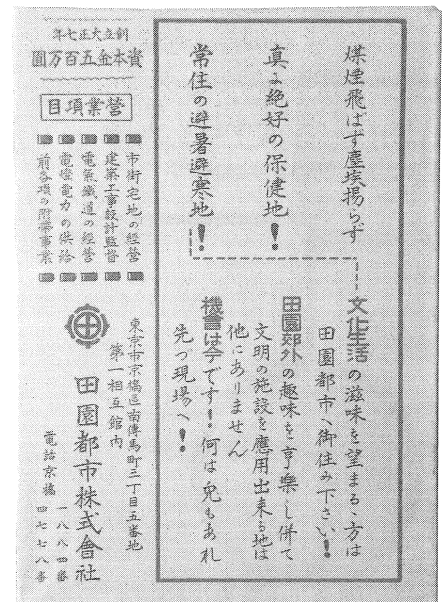 煤煙飛ばず塵埃揚らず
真に絶好の保健地!
常住の避暑避寒地!
文化生活の滋味を望まるゝ方は
田園都市へ御住み下さい!
田園郊外の趣味を享樂し併て
文明の施設を應用出来る地は
他にありません
機會は今です!何は兎もあれ
先づ現場へ!
創立大正七年
資本金五百万圓
營業項目
市街宅地の経營
建築工事設計監督
電気鐵道の経營
電燈電力の供給
前各項の附帯事業
東京市京橋區南傳馬町三丁目五番地
第一相互館内
田園都市株式會社
電話京橋
一八八四番
四七七八番